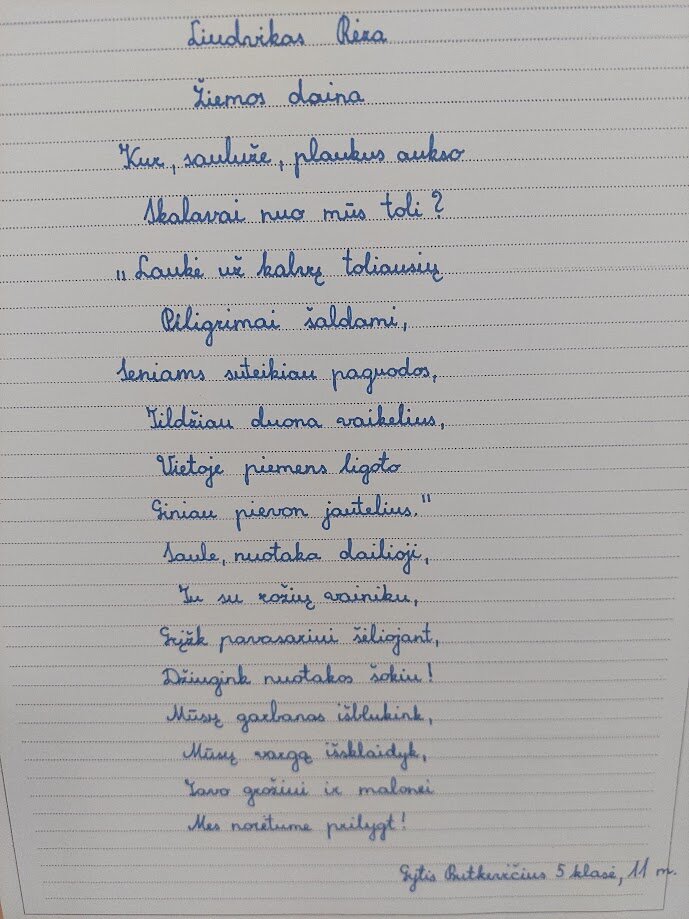 Liudvikas Rėza
Žiemos daina
Kur, saulužė, plaukus aukso
Skalavai nuo mūs toli?
„Laukė už kalvų toliausių
Piligrimai šaldami,
Seniams suteikiau paguodos,
Šildžiau duona vaikelius,
Vietoje piemens ligoto
Giniau pievon jautelius."
Saule, nuotaka dailioji,
Tu su rožių vainiku,
Grįžk pavasariui šėliojant,
Džiugink nuotakos šokiu!
Mūsų garbanas išblukink,
Mūsų vargą išsklaidyk,
Tavo grožiui ir malonei
Mes norėtume prilygt!
Gytis Butkevičius 5 klasė, 11 m.